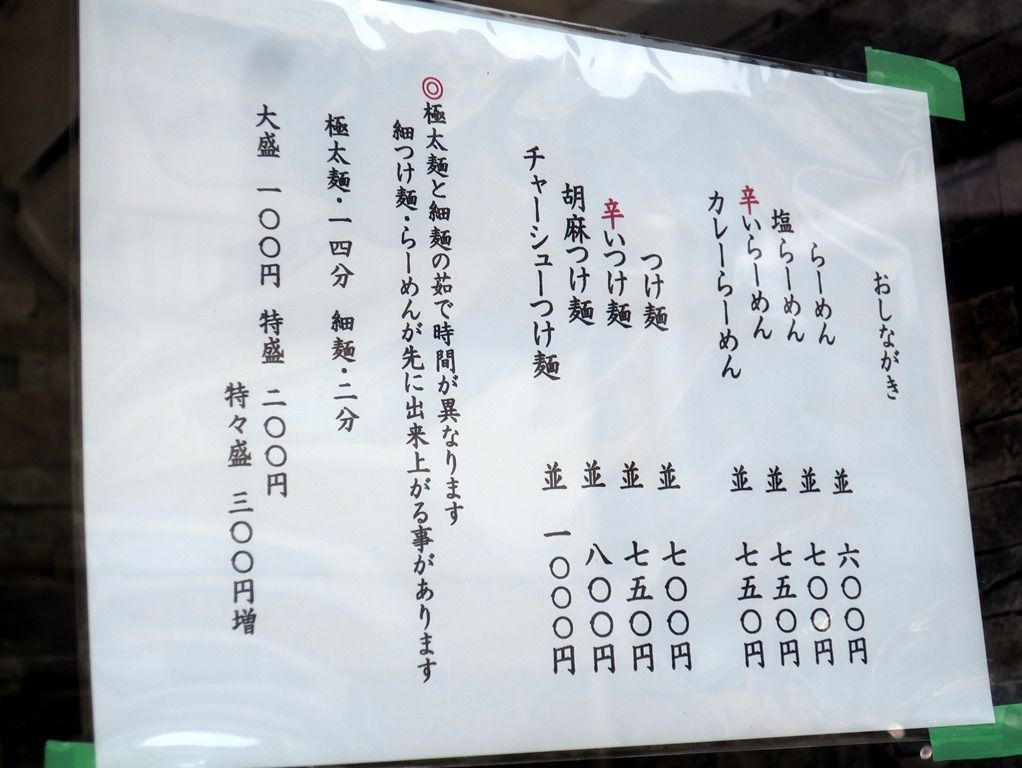 おしながき
らーめん 並 六〇〇円
塩らーめん 並 七〇〇円
辛いらーめん 並 七五〇円
カレーらーめん 並 七五〇円
つけ麺 並 七〇〇円
辛いつけ麺 並 七五〇円
胡麻つけ麺 並 八〇〇円
チャーシューつけ麺 並 一〇〇〇円
◎極太麺と細麺の茹で時間が異なります
細つけ麺・らーめんが先に出来上がる事があります
極太麺・一四分 細麺・二分
大盛 一〇〇円 特盛 二〇〇円
特々盛 三〇〇円増